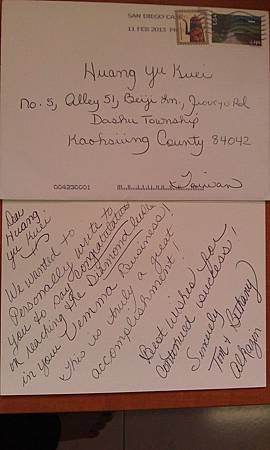 SAN DIEGO CA
11 FEB 2013 PM
Huang Yu Kuei
No. 5, Alley 51, Beiji Ln., Jiuqu Rd
Dashu Township
Kaohsiung County 84042
Taiwan
004230001
Dear
Huang
Yu Kuei
We wanted to
Personally write to
you to say Congratulations
on reaching the Diamond
in your Vemma Business!
This is truly a great
accomplishment!
Best wishes for
continued success!
Sincerely
Tom & Bethany
Alkazin